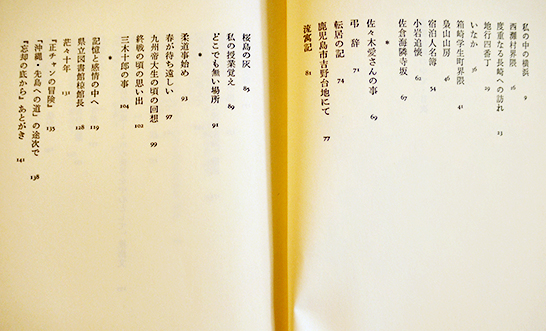 私の中の横浜 9
西灘村界隈 16
度重なる長崎への訪れ 13
地行四番丁 19
いなか 16
箱崎学生町界隈 41
梟山山房
宿泊人名簿 54
小岩追懐 62
佐倉海隣寺坂 67
*
佐々木愛さんの事 69
弔辞 71
転居の記 74
鹿児島市吉野台地にて 77
流寓記 81
桜島の灰 85
私の授業覚え 89
どこでも無い場所 91
*
柔道事始め 93
春が待ち遠しい 97
九州帝大生の頃の回想 99
終戦の頃の思い出 102
三木十郎の事 104
*
記憶と感情の中へ 119
県立図書館奄美館長 128
茫々十年 131
『正チャンの冒険』 135
『沖縄・先島への道』の途次で 138
『忘却の底から』あとがき 141